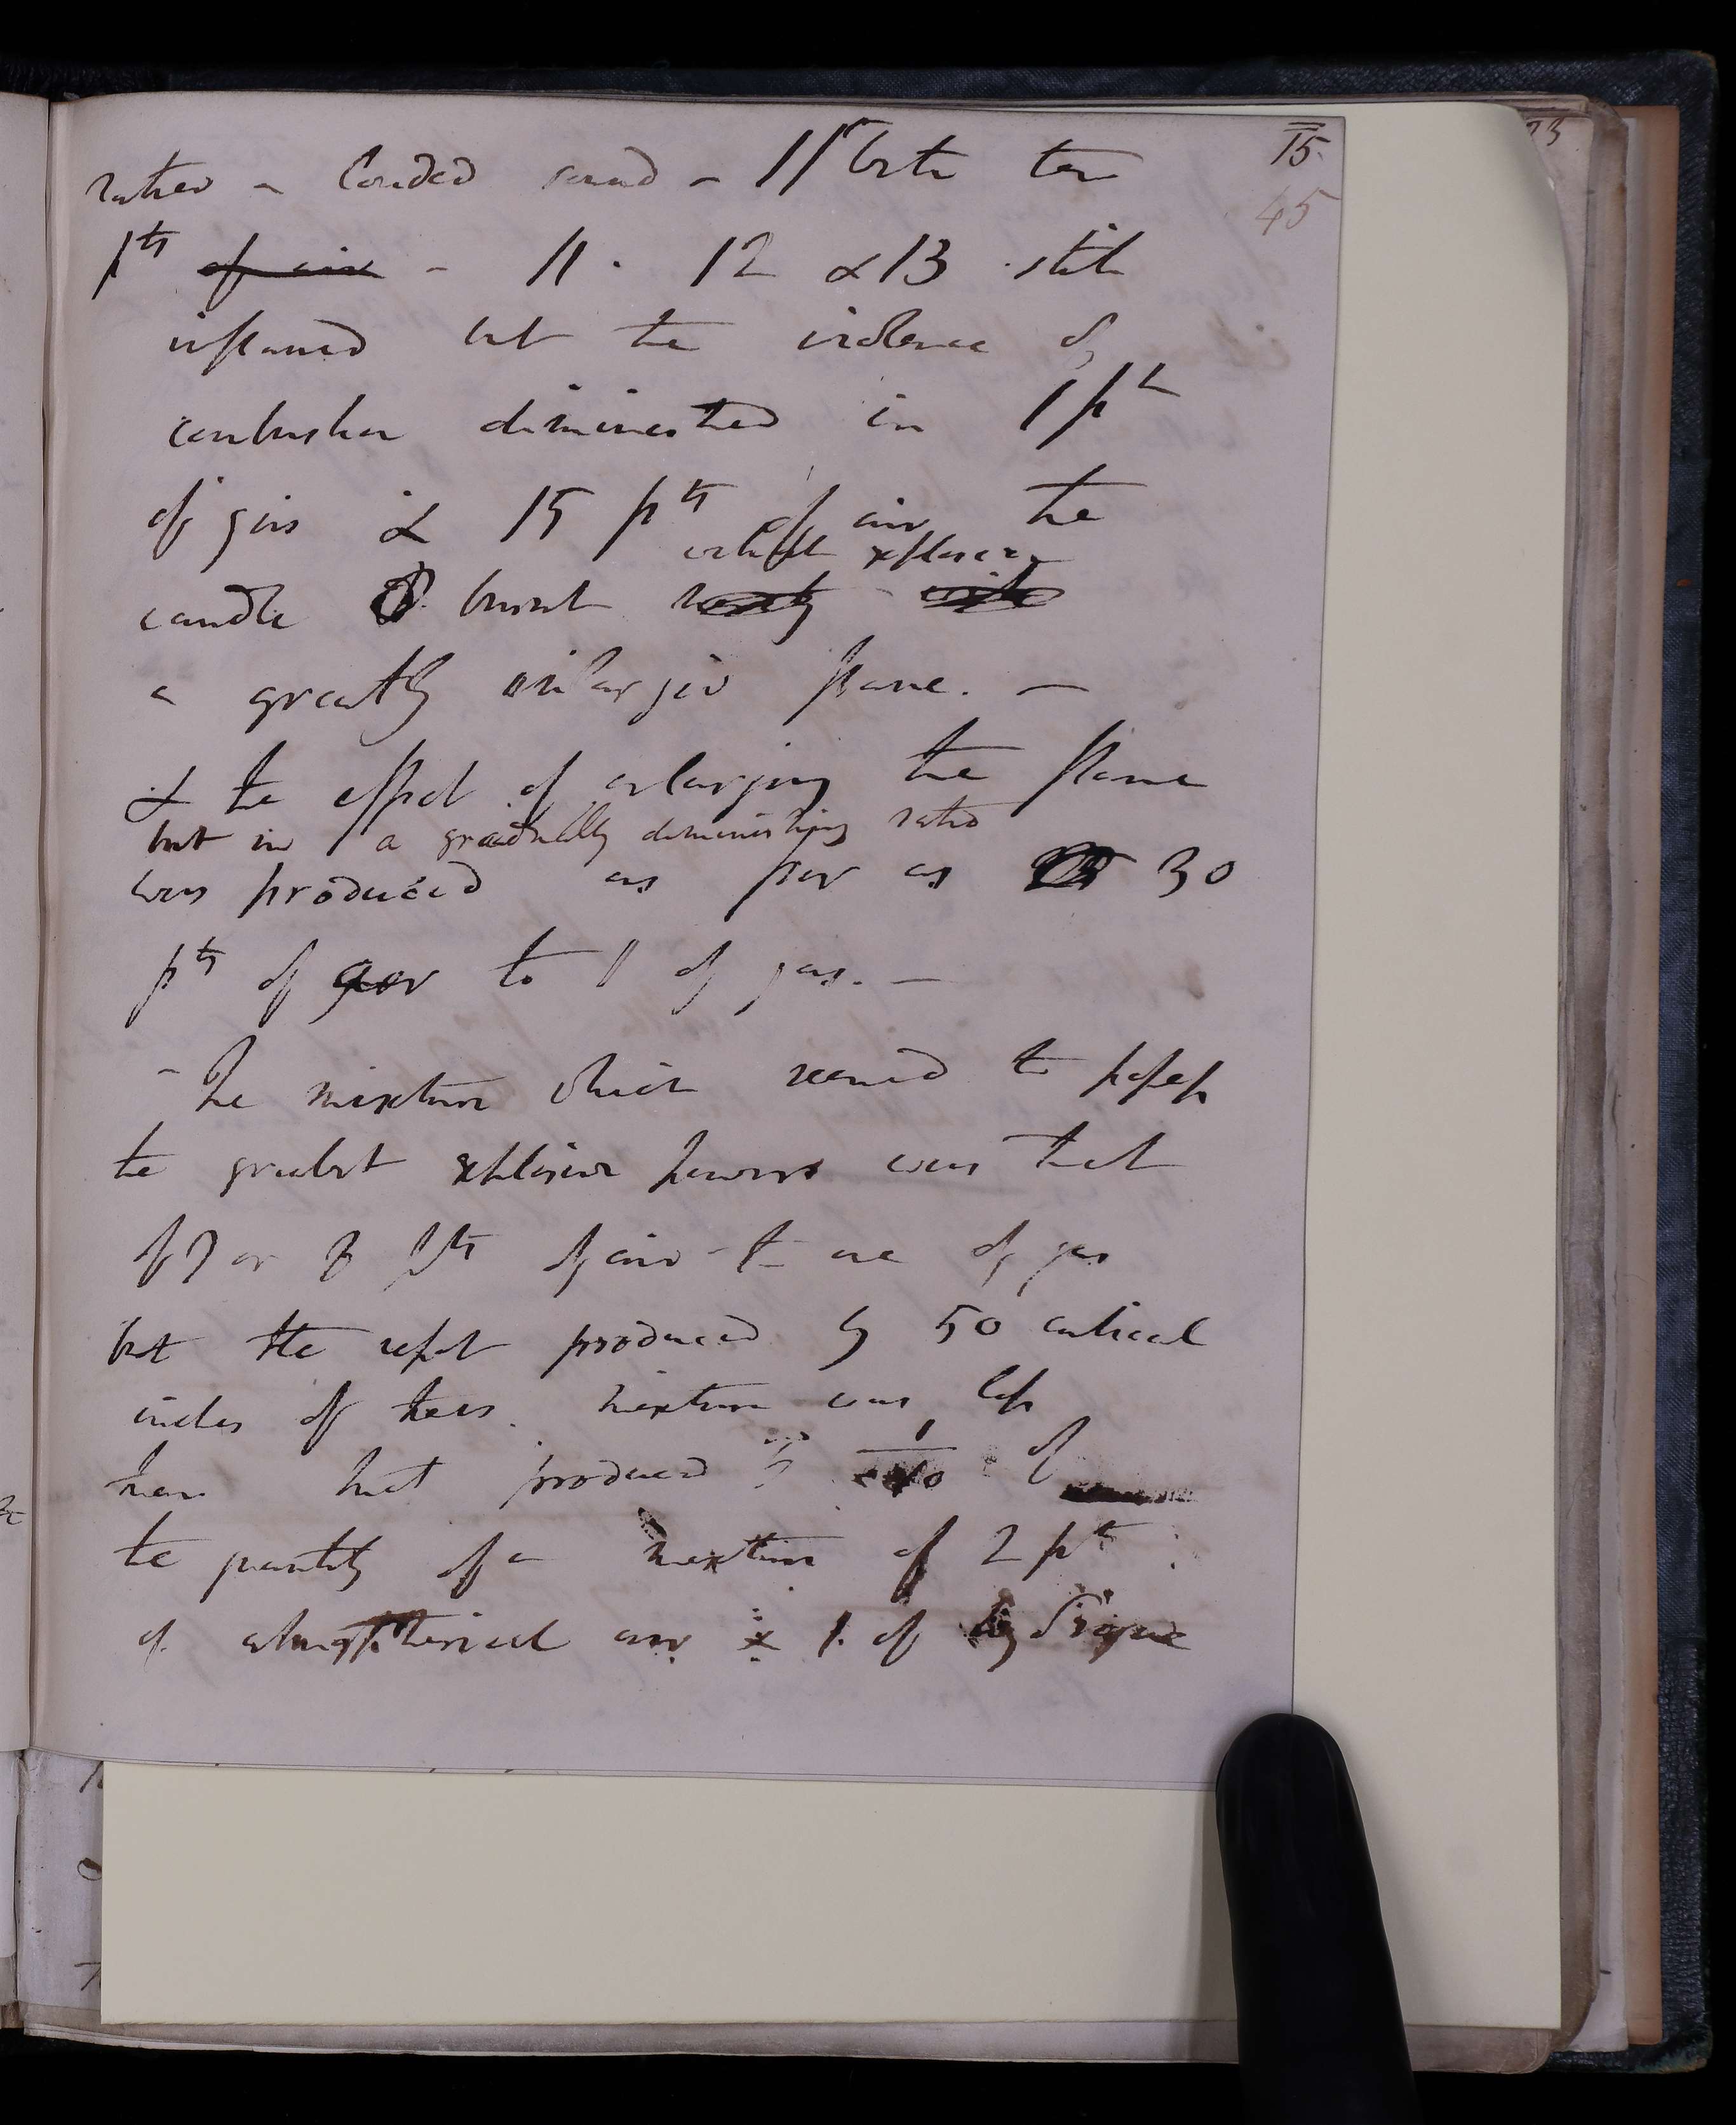 15.
45
rather a louder sound - 1 pt to ten
pts of air - 11 . 12 & 13 still
inflamed but the violence of
combustion diminished in 1 pt
of gas & 15 pts of air the
without explosion
candle burnt
a greatly enlarged flame. —
& the effect of enlarging the flame
but in a gradually diminishing ratio
was produced as far as 30
pts of air to 1 of gas. —
- The mixture which seemed to possess
the greatest explosive powers was that
of 7 or 8 pts of air to one of gas
but the report produced by 50 cubical
inches of this mixture was less
than that produced by of
the quantity of a mixture of 2 pts
of atmospherical air & 1 of hydrogene